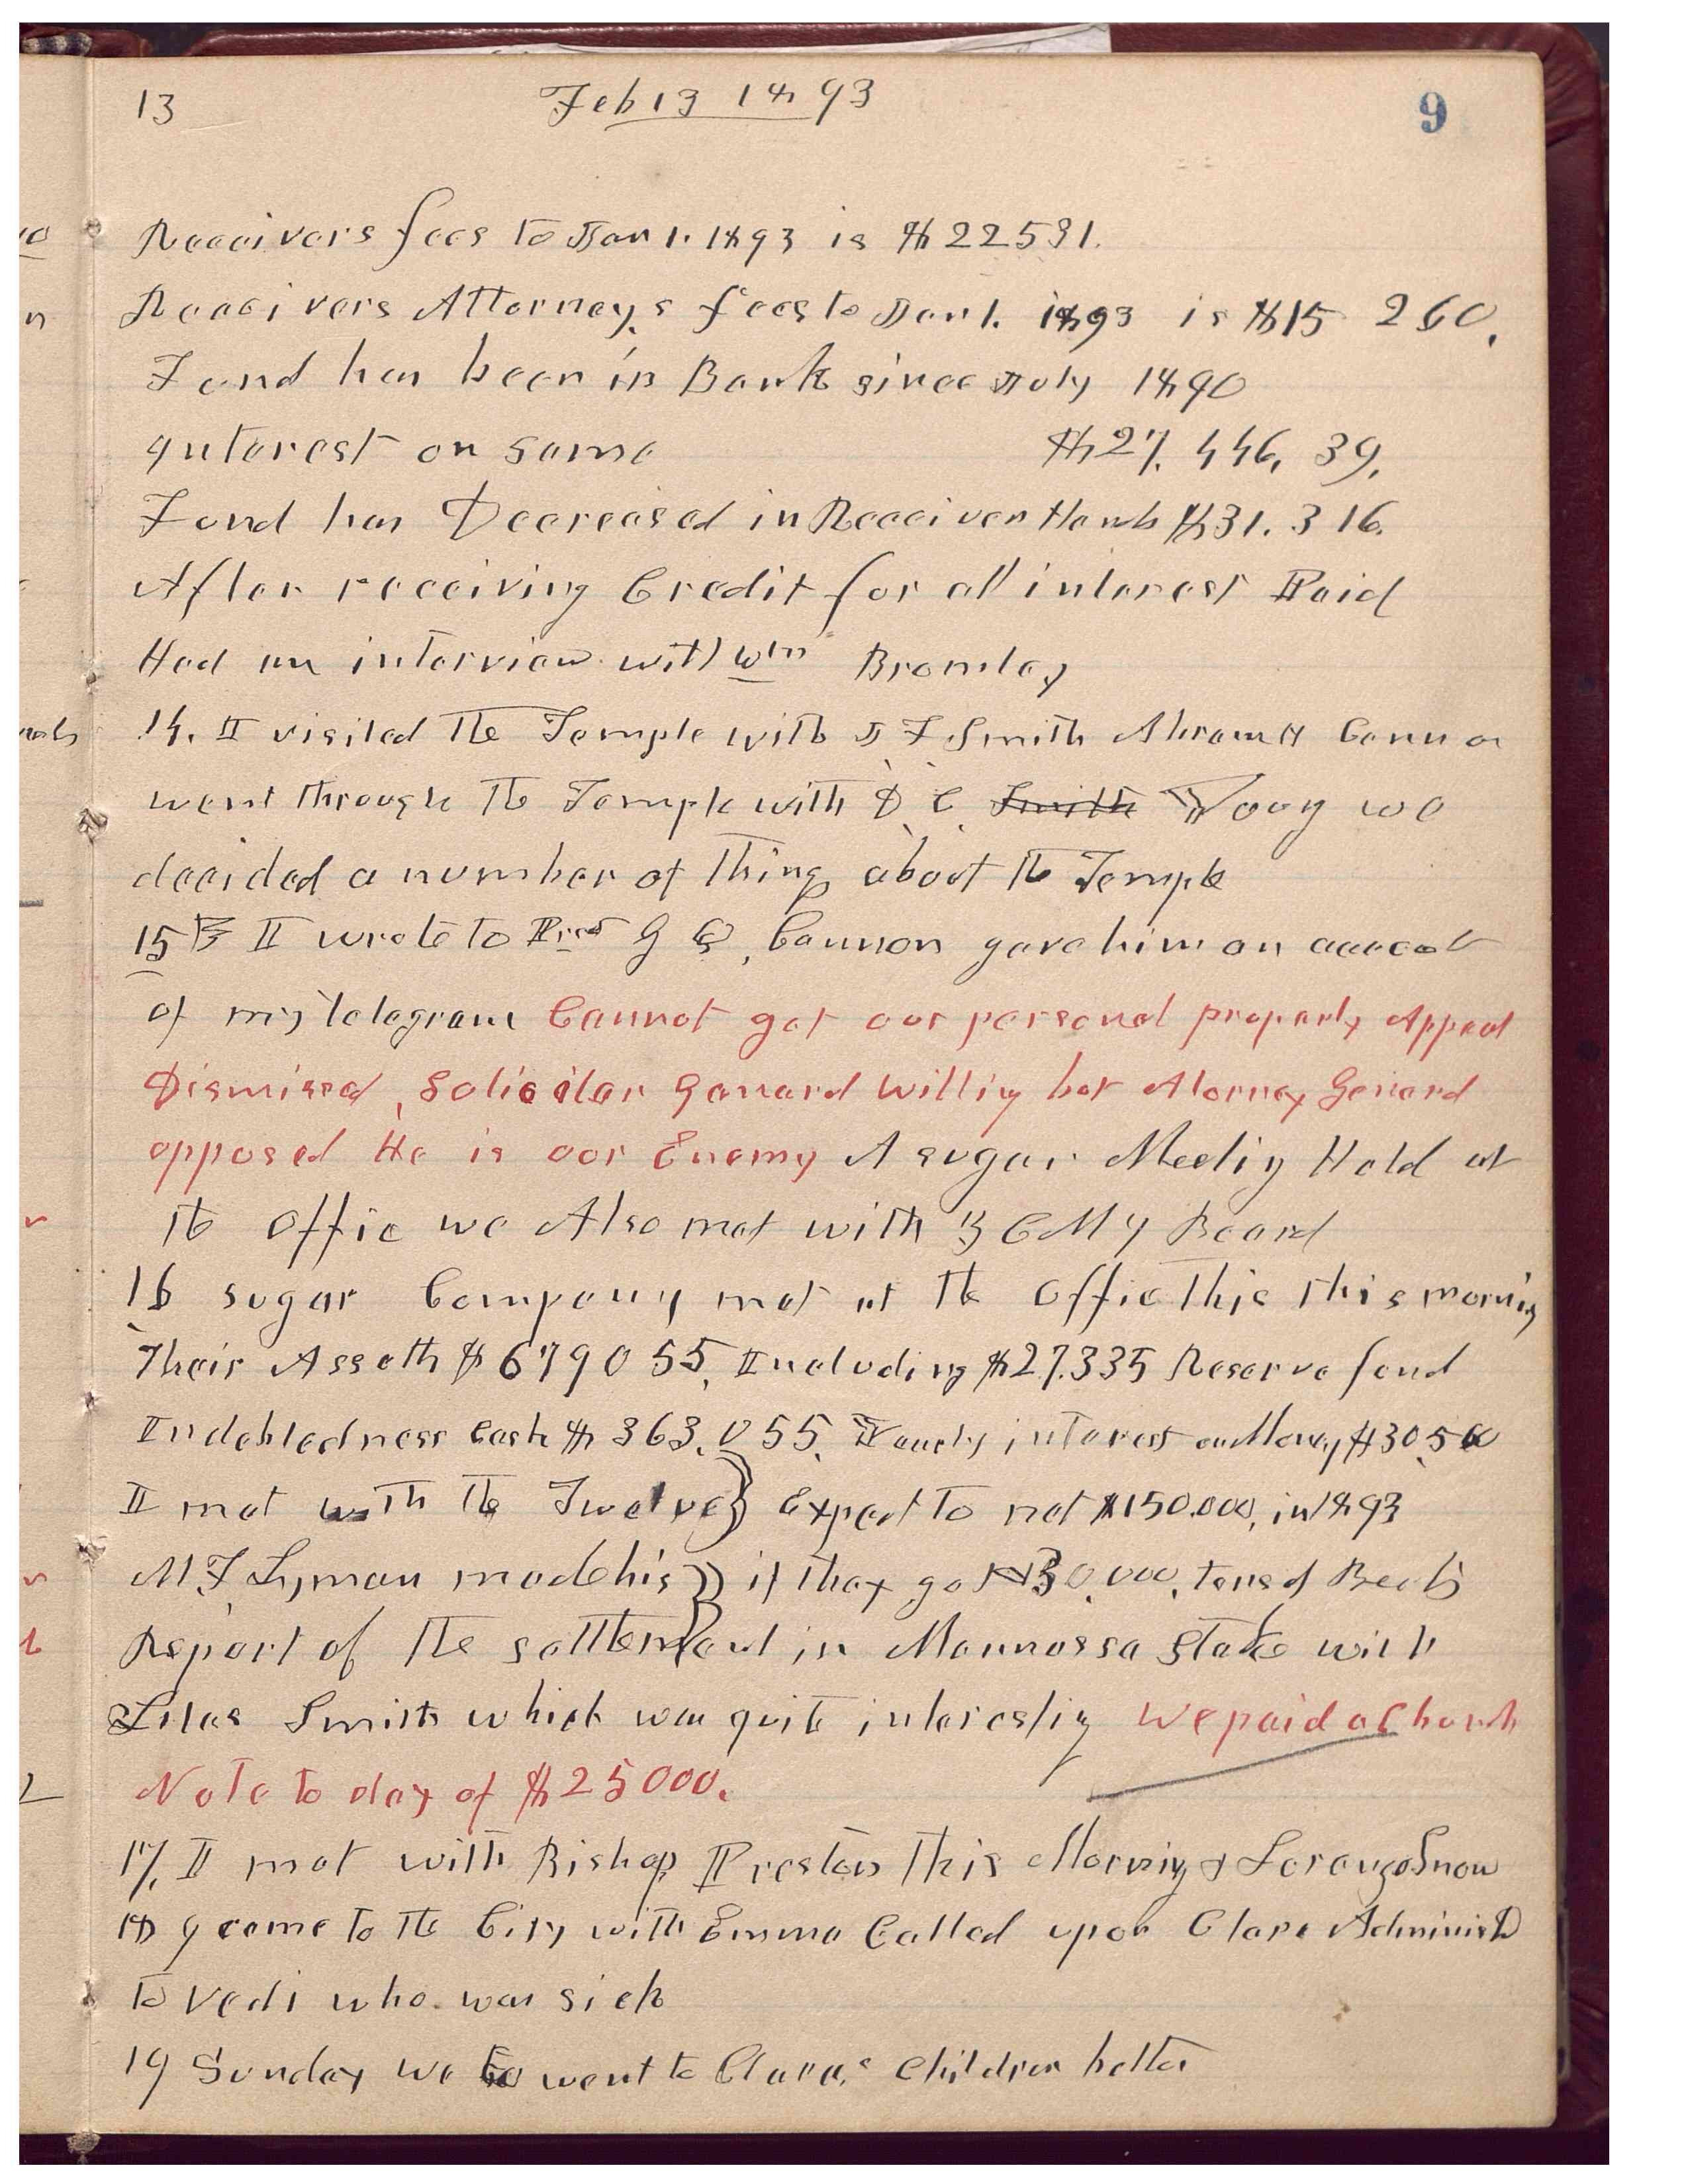 13 Feb 13 1893 9
Receivers fees to Jan 1. 1893 is $22531.
Receivers Attorneys fees to Jan 1. 1893 is $15 260.
Fund has been in Bank since July 1890
Interest on same $27. 446, 39,
Fund has Decreased in Receiver Hands $31. 316.
After receiving Credit for all interest Paid
Had an interview with Wm Bromley
14. I visited the Temple with J F Smith Abram H Cannon
went through the Temple with D. C. Smith Young we
decided a number of things about the Temple
15 I wrote to Pres G Q, Cannon gave him an account
of my telegram Cannot get our personal property Appeal
Dismissed, Soliciter General Willing but Atorney General
opposed He is our Enemy A sugar Meeting Held at
the Offic we Also met with Z C M I Board
16 sugar Company met at the Offic This this morning
Their Assetts $679055, Including $27.335 Reserve fund
Indebtedness Cash $363.055. Yearly interest on Money $30.500
I met with the Twelve} Expect to net $150.000, in 1893
M F Lyman made his} if they get 30.000, tons of Beets
Report of the settlement in Mannossa Stake with
Silas Smith which was quite interesting We paid a Church
Note to day of $25000.
17, I met with Bishop Preston This Morning & Lorenzo Snow
18 I came to the City with Emma Called upon Clara Administ
to Vedi who was sick
19 Sunday We to went to Claras Children better